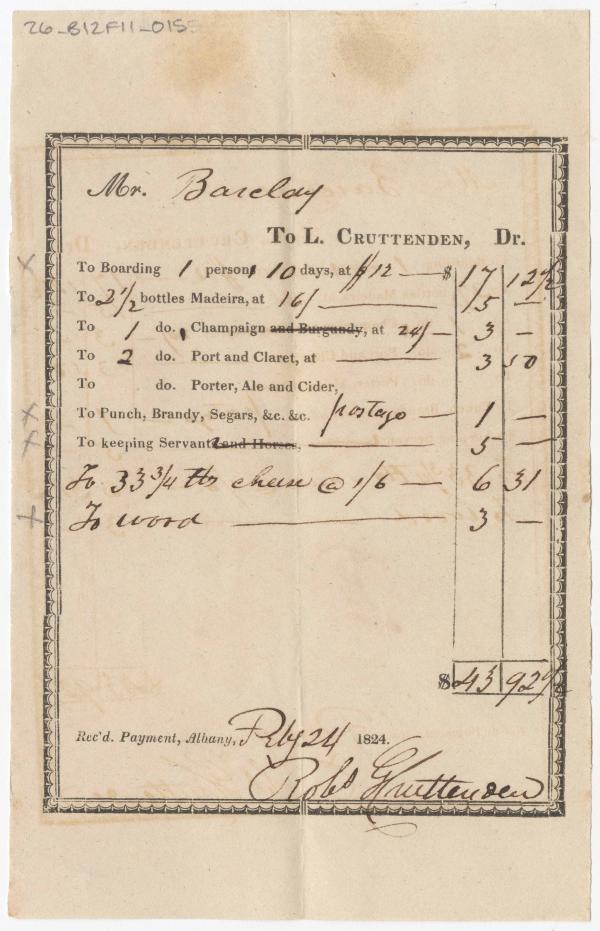 26_B12F11_015
Mr. Barclay
To L. Cruttenden, Dr.
To Boarding 1 person 10 days, at $12 — $ 17 12½
To 2½ bottles Madeira, at 16/ — 5 —
To 1 do. Champaign and Burgundy, at 24/ — 3 —
To 2 do. Port and Claret, at — 3 50
To do. Porter, Ale and Cider,
To Punch, Brandy, Segars, &c. &c. postage — 1 —
To keeping Servant and Horses, — 5 —
To 33 3/4 lbs cheese @ 1/6 — 6 31
To wood — 3 —
$ 43 92½
Rec'd. Payment, Albany, Feby 24 1824.
Cruttenden